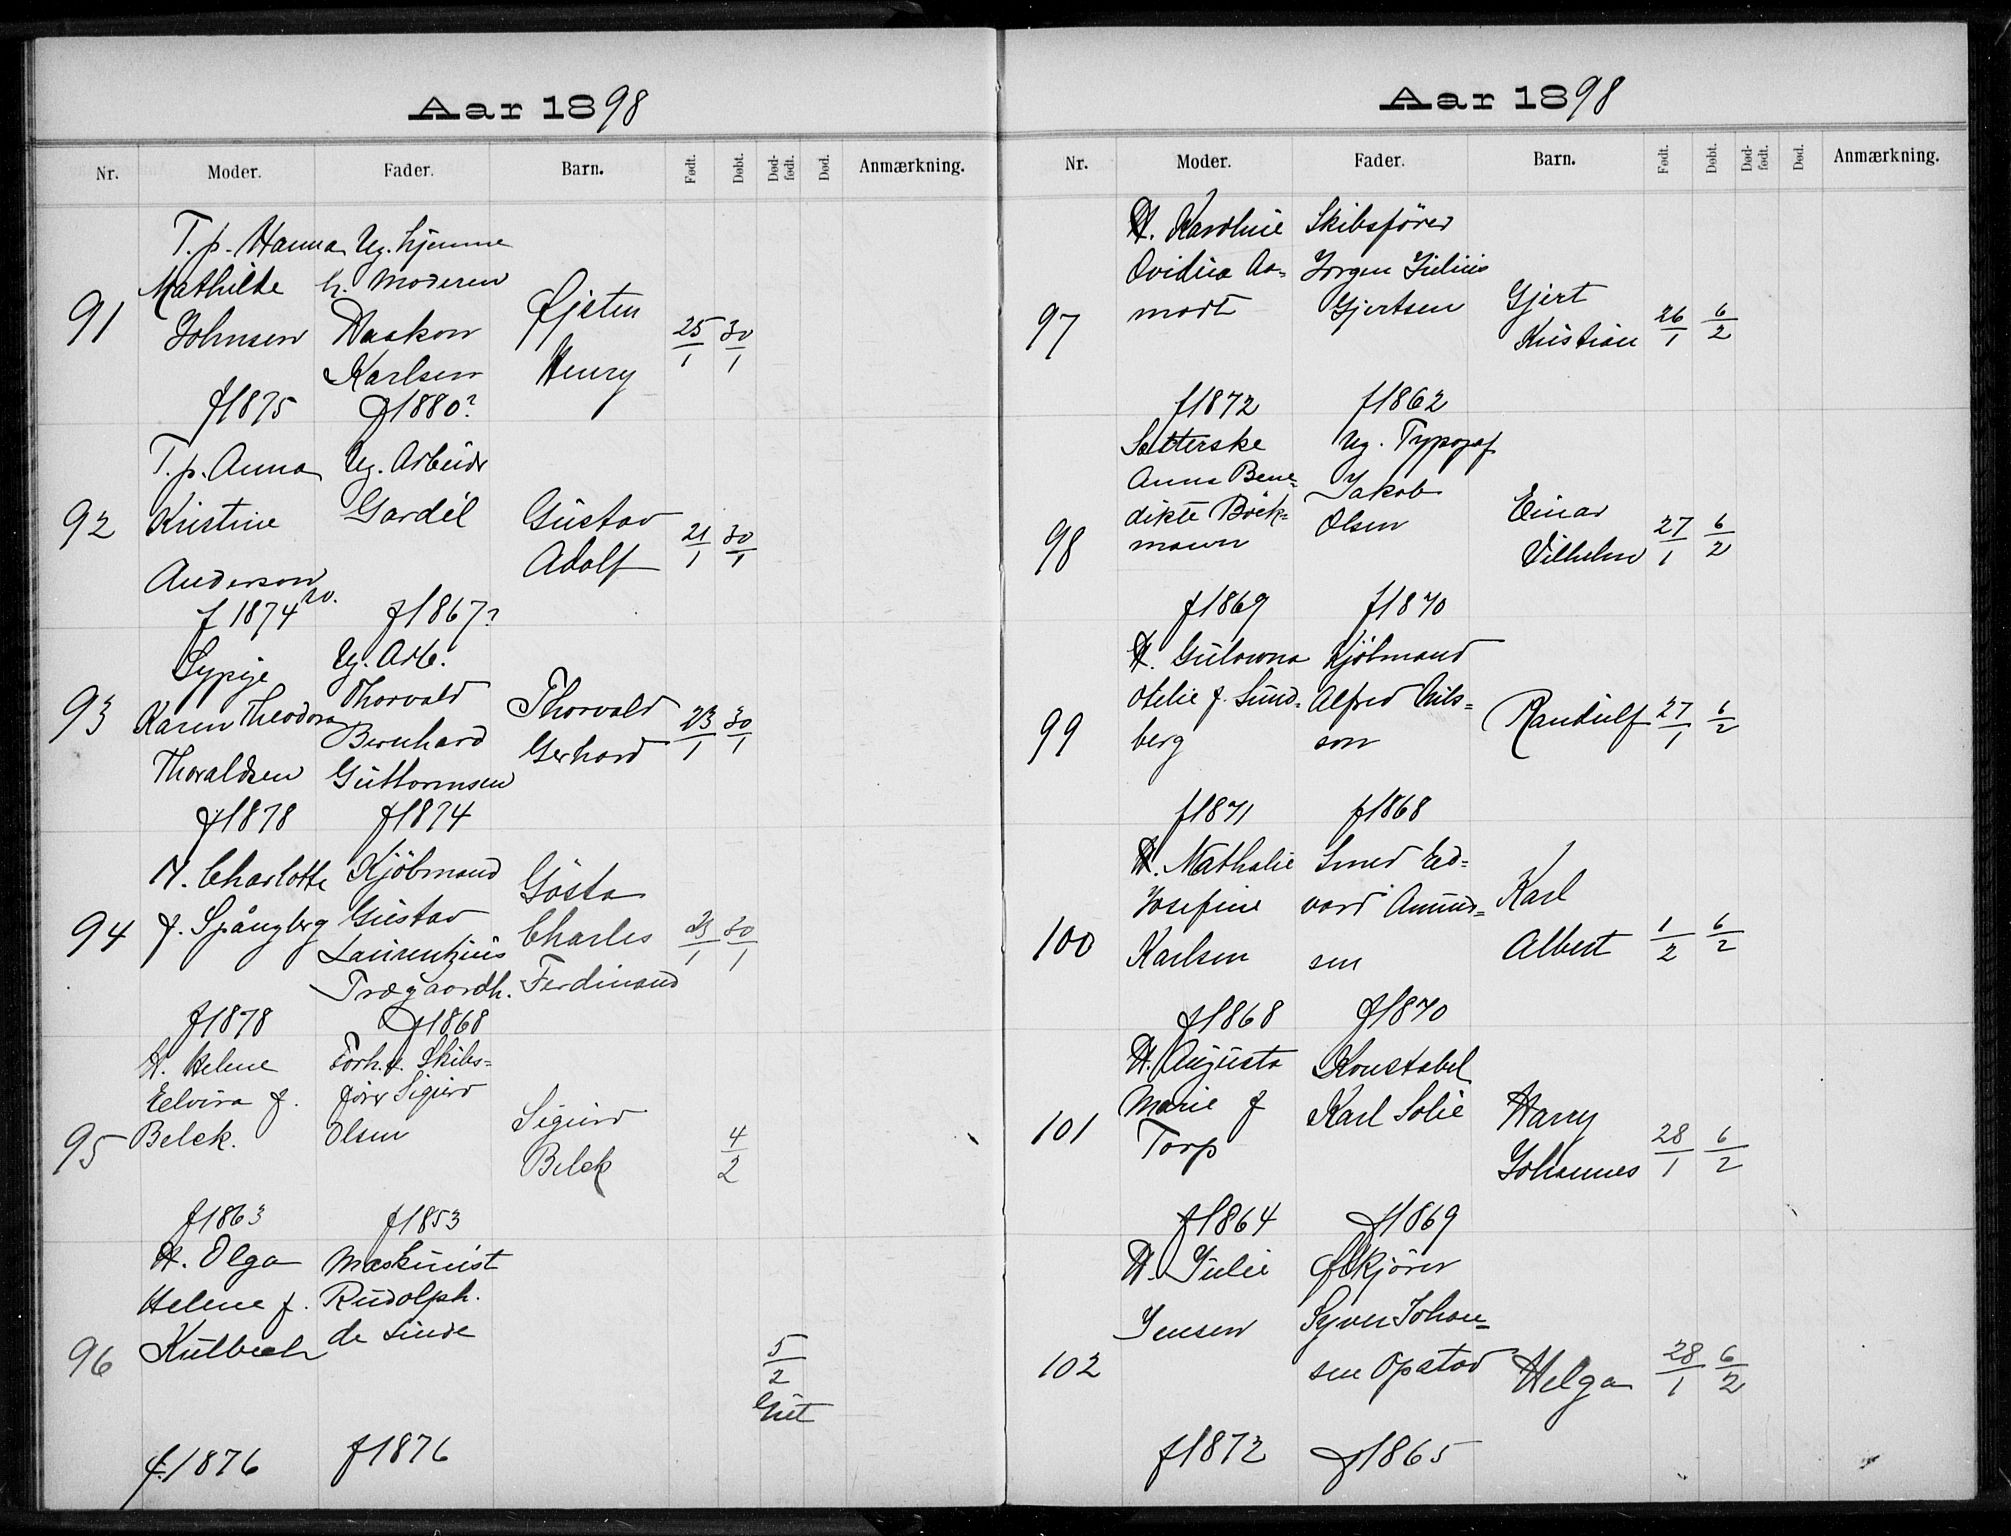 Aar 1898
Nr. Moder. Fader. Barn. Født. Døbt. Død-født. Død. Anmærkning.
91
T. p. Hanna
Mathilde
Johnsen
f 1875
Ug. hjemme
h. Moderen
Haakon
Karlsen
f 1880?
Øisten
Henry
25/1 30/1
92
T. p. Anna
Kristine
Anderson
f 1874
Ug. Arbeider
Gardél
f 1867?
Gustav
Adolf
21/1 30/1
93
Sypige
Karen Theodora
Thoraldsen
f 1878
Ug. Arb.
Thorvald
Bernhard
Guttormsen
f 1874
Thorvald
Gerhard
23/1 30/1
94
H. Charlotte
f. Spångberg
f 1878
Kjöbmand
Gustav
Laurentzius
Trægaardh.
f 1868
Gösta
Charles
Ferdinand
23/1 30/1
95
H. Helene
Elvira f.
Belck.
f 1863
Forh.v. Skibs-
förer Sigurd
Olsen
f 1853
Sigurd
Belck
4/2
96
H. Olga
Helene f.
Kulbech
f. 1876
Maskinist
Rudolph.
de Linde
f 1876
5/2
Gut
Aar 1898
Nr. Moder. Fader. Barn. Født. Døbt. Død-født. Død. Anmærkning.
97
H. Karoline
Ovidia Aa-
modt
f 1872
Skibsförer
Jörgen Julius
Gjertsen
f 1862
Gjert
Kristian
26/1 6/2
98
Sætterske
Anna Bene-
dikte Böck-
mann
f 1869
Ug. Typograf
Jakob
Olsen
f 1870
Einar
Vilhelm
27/1 6/2
99
H. Gulowna
Otelie f. Lund-
berg
f 1871
Kjöbmand
Alfred Nils-
son
f 1868
Randulf
27/1 6/2
100
H. Nathalie
Josefine
Karlsen
f 1868
Smed Ed-
vard Amund-
sen
f 1870
Karl
Albert
1/2 6/2
101
H. Augusta
Marie f
Torp
f 1864
Konstabel
Karl Solie
f 1869
Harry
Johannes
28/1 6/2
102
H. Julie
Jensen
f 1872
Ølkjörer
Syver Johan-
sen Opstad
f 1865
Helga
28/1 6/2